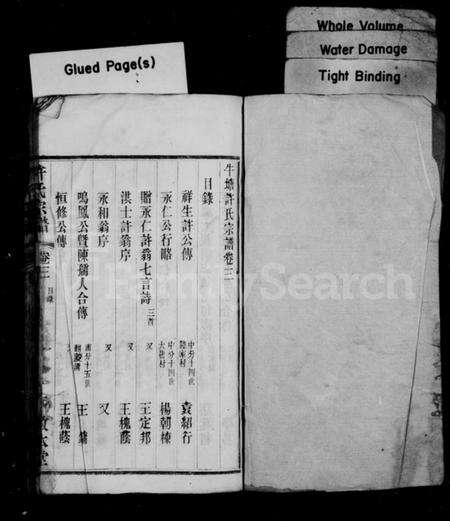 Whole Volume
Water Damage
Tight Binding
Glued Page(s)
牛塘許氏宗譜卷三
目錄
祥生許公傳 中分十四世 袁紹行
永仁公行略 中分十四世 大街村 楊朝棟
贈永仁許翁七言詩 三首 又 王定邦
洪士許翁序 又 王槐蔭
永和翁序 又
鳴鳳公暨陳孺人合傳 十五世 王
恒修公傳 王槐蔭
許氏宗譜 卷三 目錄 本堂
FamilySearch